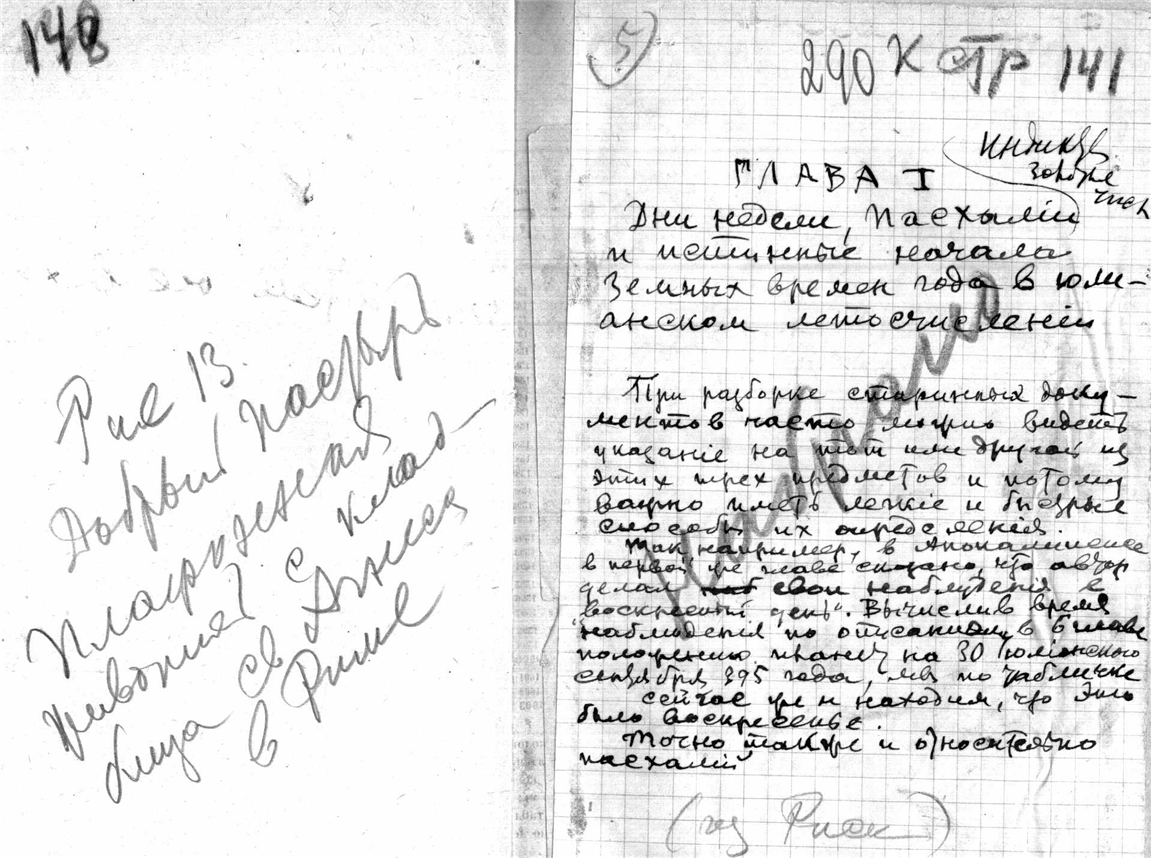 148
Рис 13.
Добрый Пастырь
Плафонная
живопись с клад-
бища св Агнесы
в Риме
5
290 К стр 141
ГЛАВА I
Дни недели, Пасхаліи
и истинные начала
Земных времен года в юли-
анском летосчисленіи
Набрано
При разборке старинных доку-
ментов часто можно видеть
указаніе на тот или другой из
этих трех предметов и потому
важно иметь легкіе и быстрые
способы их определения.
Так, например, в Апокалипсисе
в первой же главе сказано, что автор
делал свои наблюденія в
воскресный день". Вычислив время
наблюденія по описаниям в 6 главе
положению планет на 30 юлианского
сентября 395 года, мы по табличке
сейчас же и находим, что это
было воскресенье.
Точно также и относительно
пасхалий